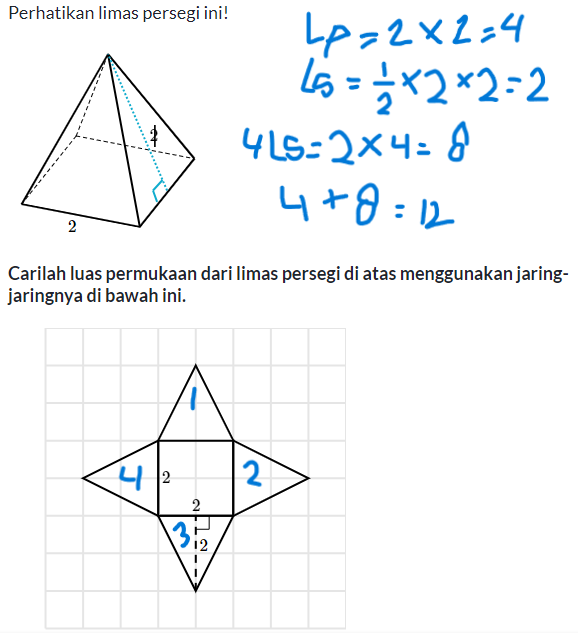 Perhatikan limas persegi ini!
Lp = 2 × 2 = 4
Ls = 1/2 × 2 × 2 = 2
4Ls = 2 × 4 = 8
4 + 8 = 12
2
Carilah luas permukaan dari limas persegi di atas menggunakan jaring-
jaringnya di bawah ini.
1
4
2
2
2
3
2